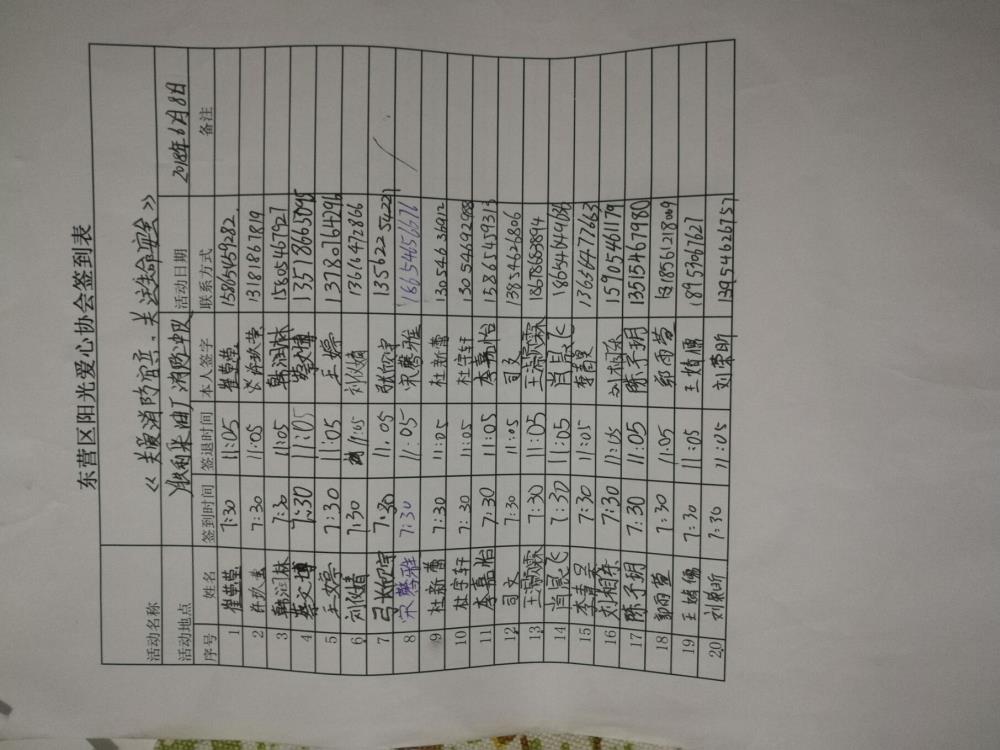 东营区阳光爱心协会签到表
活动名称 《关爱消防官兵,关注生命安全》
活动地点 胜利采油厂消防中队 活动日期 2018年6月8日
序号 姓名 签到时间 签退时间 本人签字 联系方式 备注
1 崔莹莹 7:30 11:05 崔莹莹 15865459282
2 许玖莹 7:30 11:05 许玖莹 13181867819
3 韩润林 7:30 11:05 韩润林 15805467927
4 蔡文博 7:30 11:05 蔡文博 13518665095
5 王婷 7:30 11:05 王婷 13780764296
6 刘倩 7:30 11:05 刘倩 13616472866
7 张欣宇 7:30 11:05 张欣宇 13562254221
8 宋馨雅 7:30 11:05 宋馨雅 18654656676
9 杜新蕾 7:30 11:05 杜新蕾 13054636912
10 杜宇轩 7:30 11:05 杜宇轩 13054692988
11 李嘉怡 7:30 11:05 李嘉怡 15865459313
12 司文 7:30 11:05 司文 13854626806
13 王灏霖 7:30 11:05 王灏霖 18678653894
14 肖晨飞 7:30 11:05 肖晨飞
15 7:30 11:05 13664777663
16 刘相乐 7:30 11:05 刘相乐 15705461179
17 陈子玥 7:30 11:05 陈子玥 13515467980
18 郭雨萱 7:30 11:05 郭雨萱 18856218069
19 王婧儒 7:30 11:05 王婧儒 18953067627
20 刘荣昕 7:30 11:05 刘荣昕 13954626757